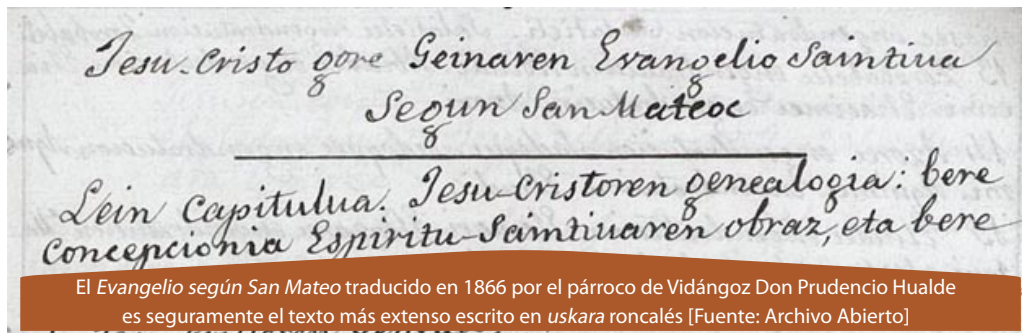 Jesu-Cristo gore Geinaren Evangelio Saintiua
Segun San Mateoc
Lein Capitulua. Jesu-Cristoren genealogia: bere
concepcionia Espiritu-Saintiuaren obraz, eta bere
El Evangelio según San Mateo traducido en 1866 por el párroco de Vidángoz Don Prudencio Hualde
es seguramente el texto más extenso escrito en uskara roncalés [Fuente: Archivo Abierto]